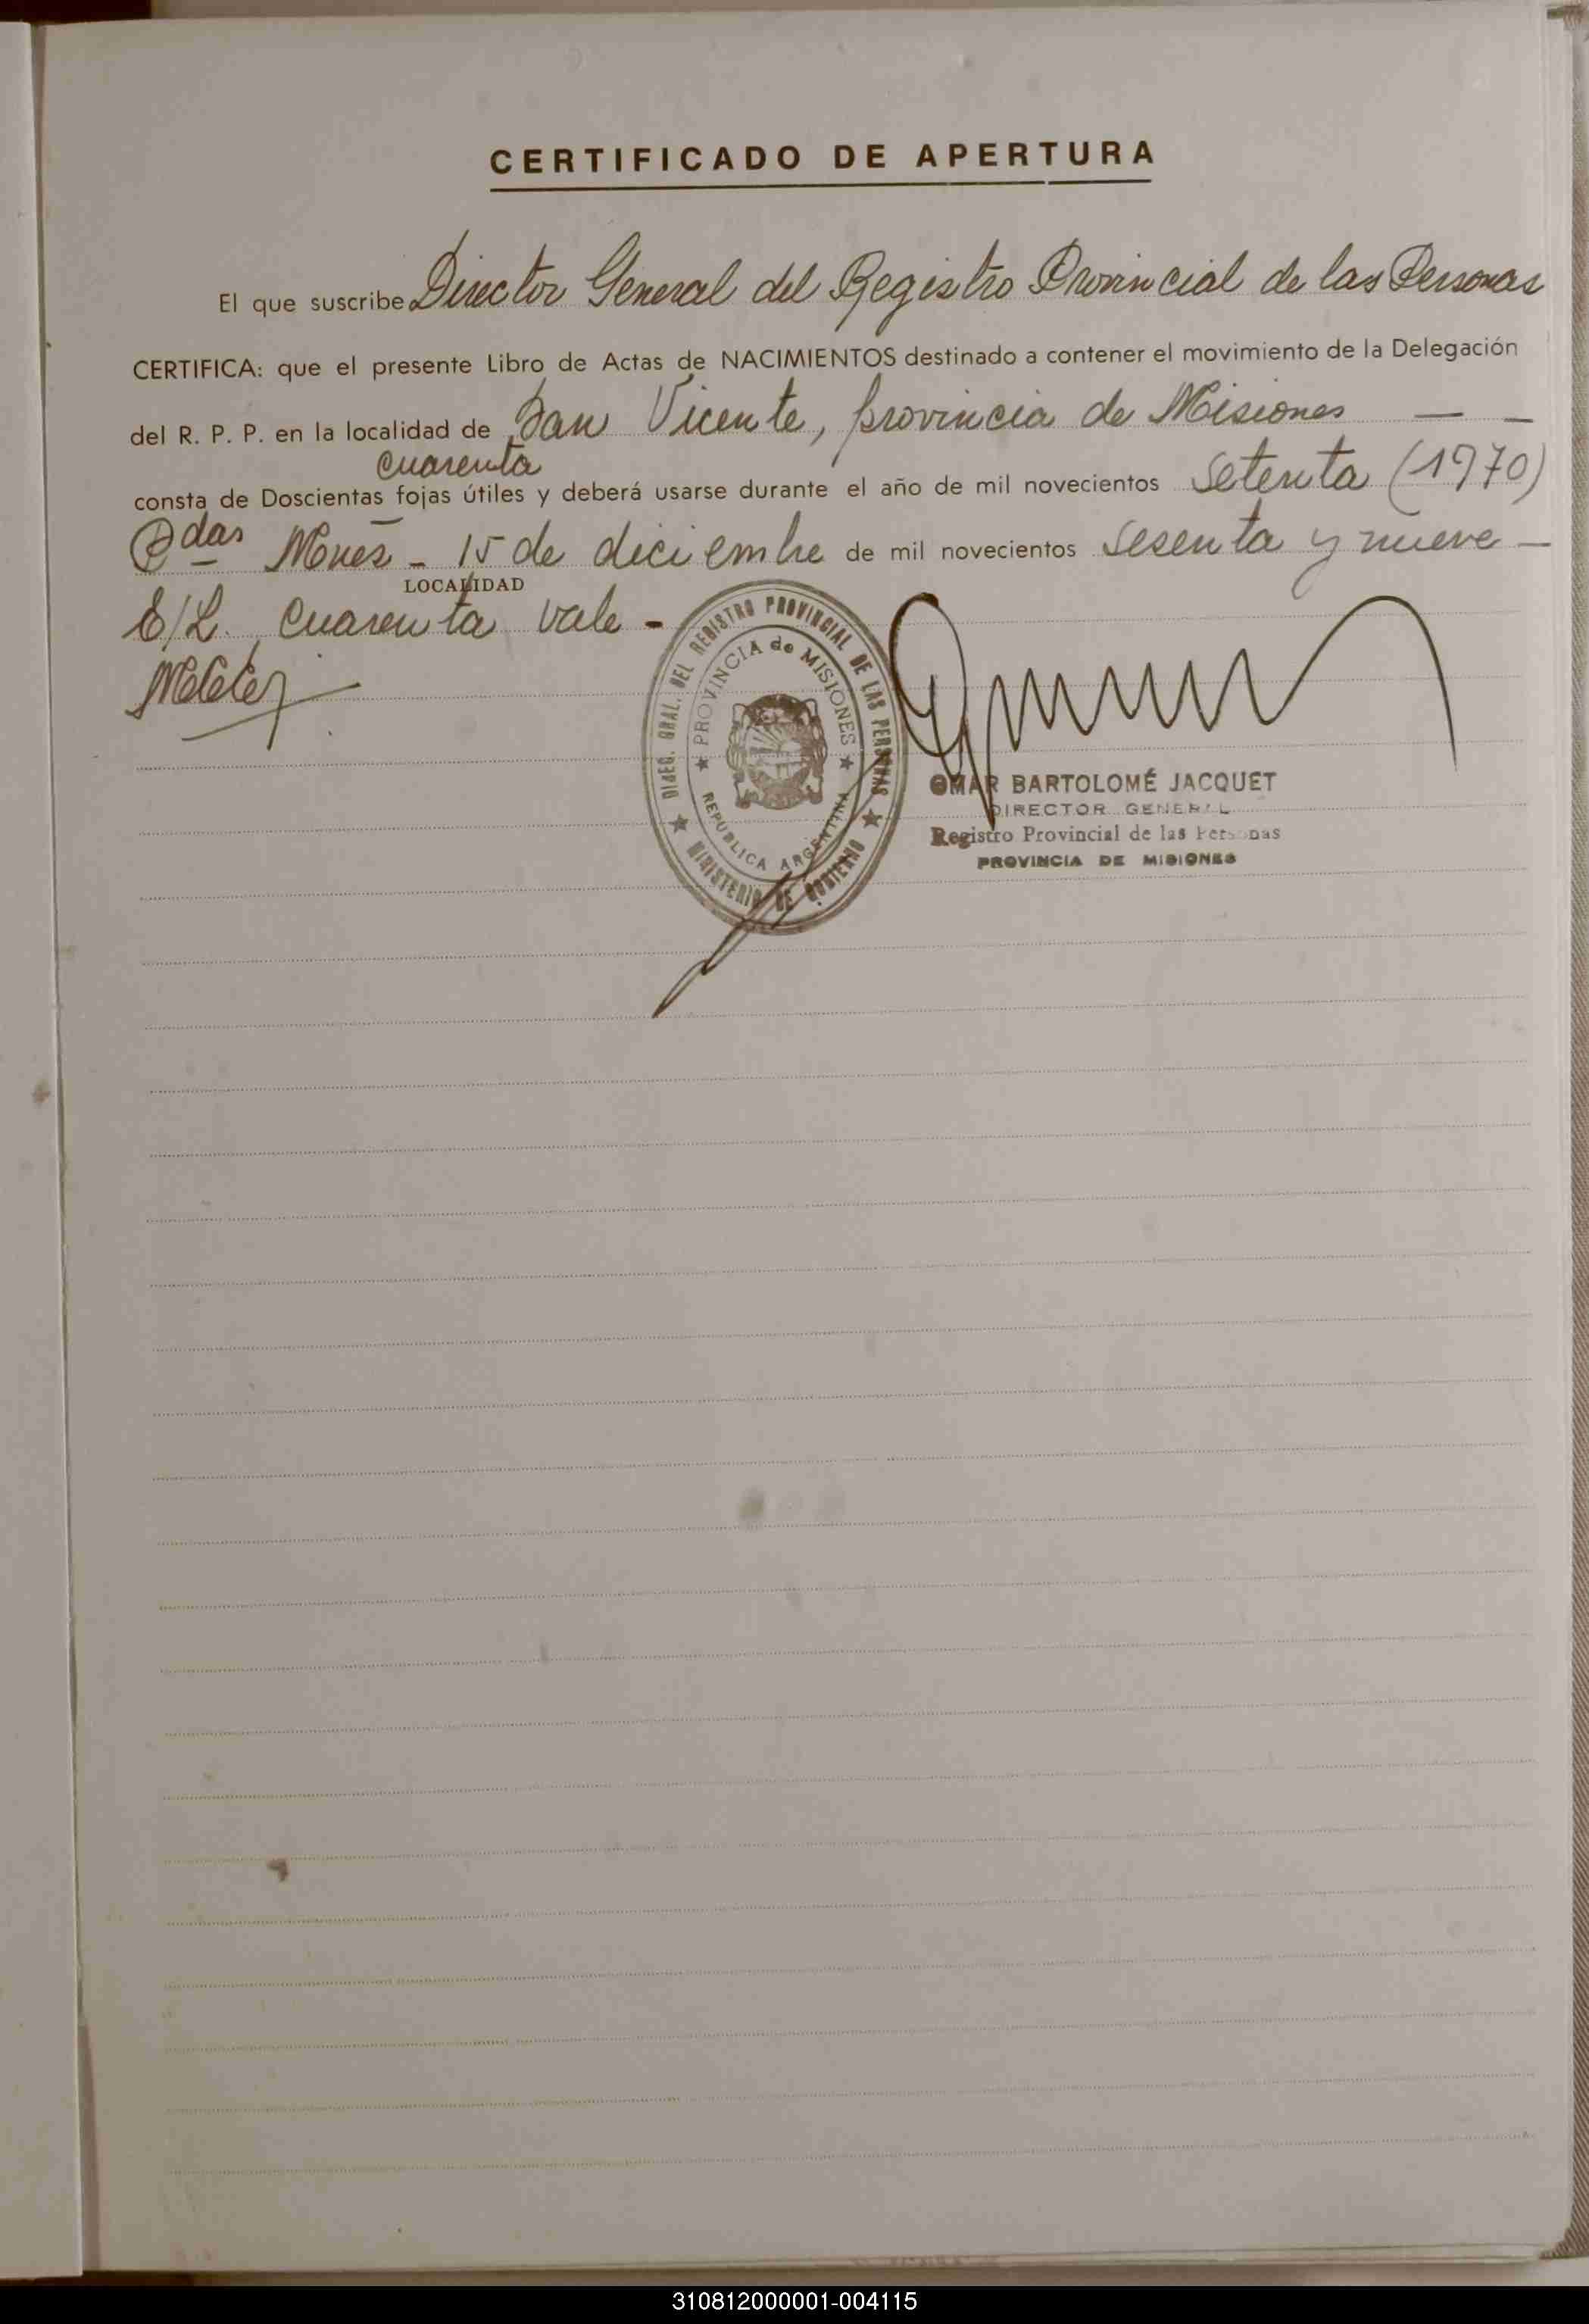 CERTIFICADO DE APERTURA
El que suscribe Director General del Registro Provincial de las Personas
CERTIFICA: que el presente Libro de Actas de NACIMIENTOS destinado a contener el movimiento de la Delegación
del R. P. P. en la localidad de San Vicente, provincia de Misiones — —
cuarenta
consta de Doscientas fojas útiles y deberá usarse durante el año de mil novecientos Setenta (1970)
Pdas Mnes - 15 de diciembre de mil novecientos sesenta y nueve —
LOCALIDAD
E/L. cuarenta vale -
DIREC. GRAL. DEL REGISTRO PROVINCIAL DE LAS PERSONAS
PROVINCIA de MISIONES
REPUBLICA ARGENTINA
MINISTERIO DE GOBIERNO
OMAR BARTOLOMÉ JACQUET
DIRECTOR GENERAL
Registro Provincial de las Personas
PROVINCIA DE MISIONES
310812000001-004115